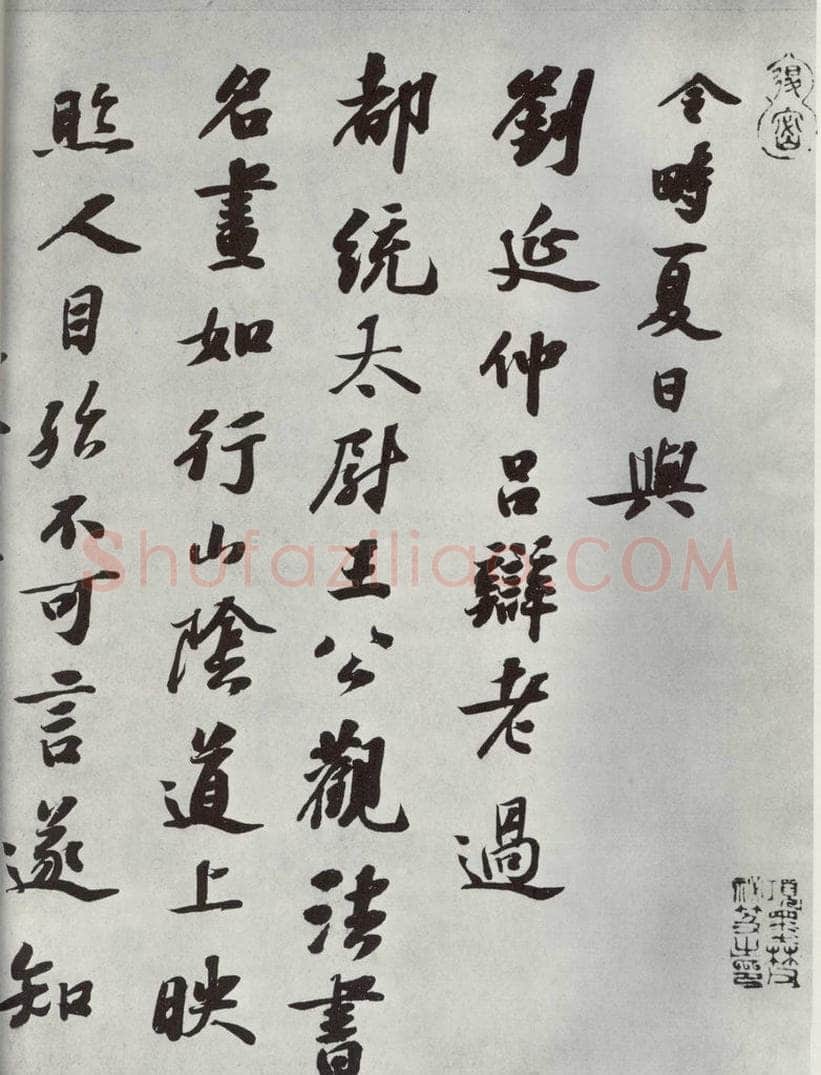 令時夏日與
劉延仲吕辯老過
都統太尉王公觀法書
名畫如行山陰道上映
照人目殆不可言遂知
Shufaziliao.COM